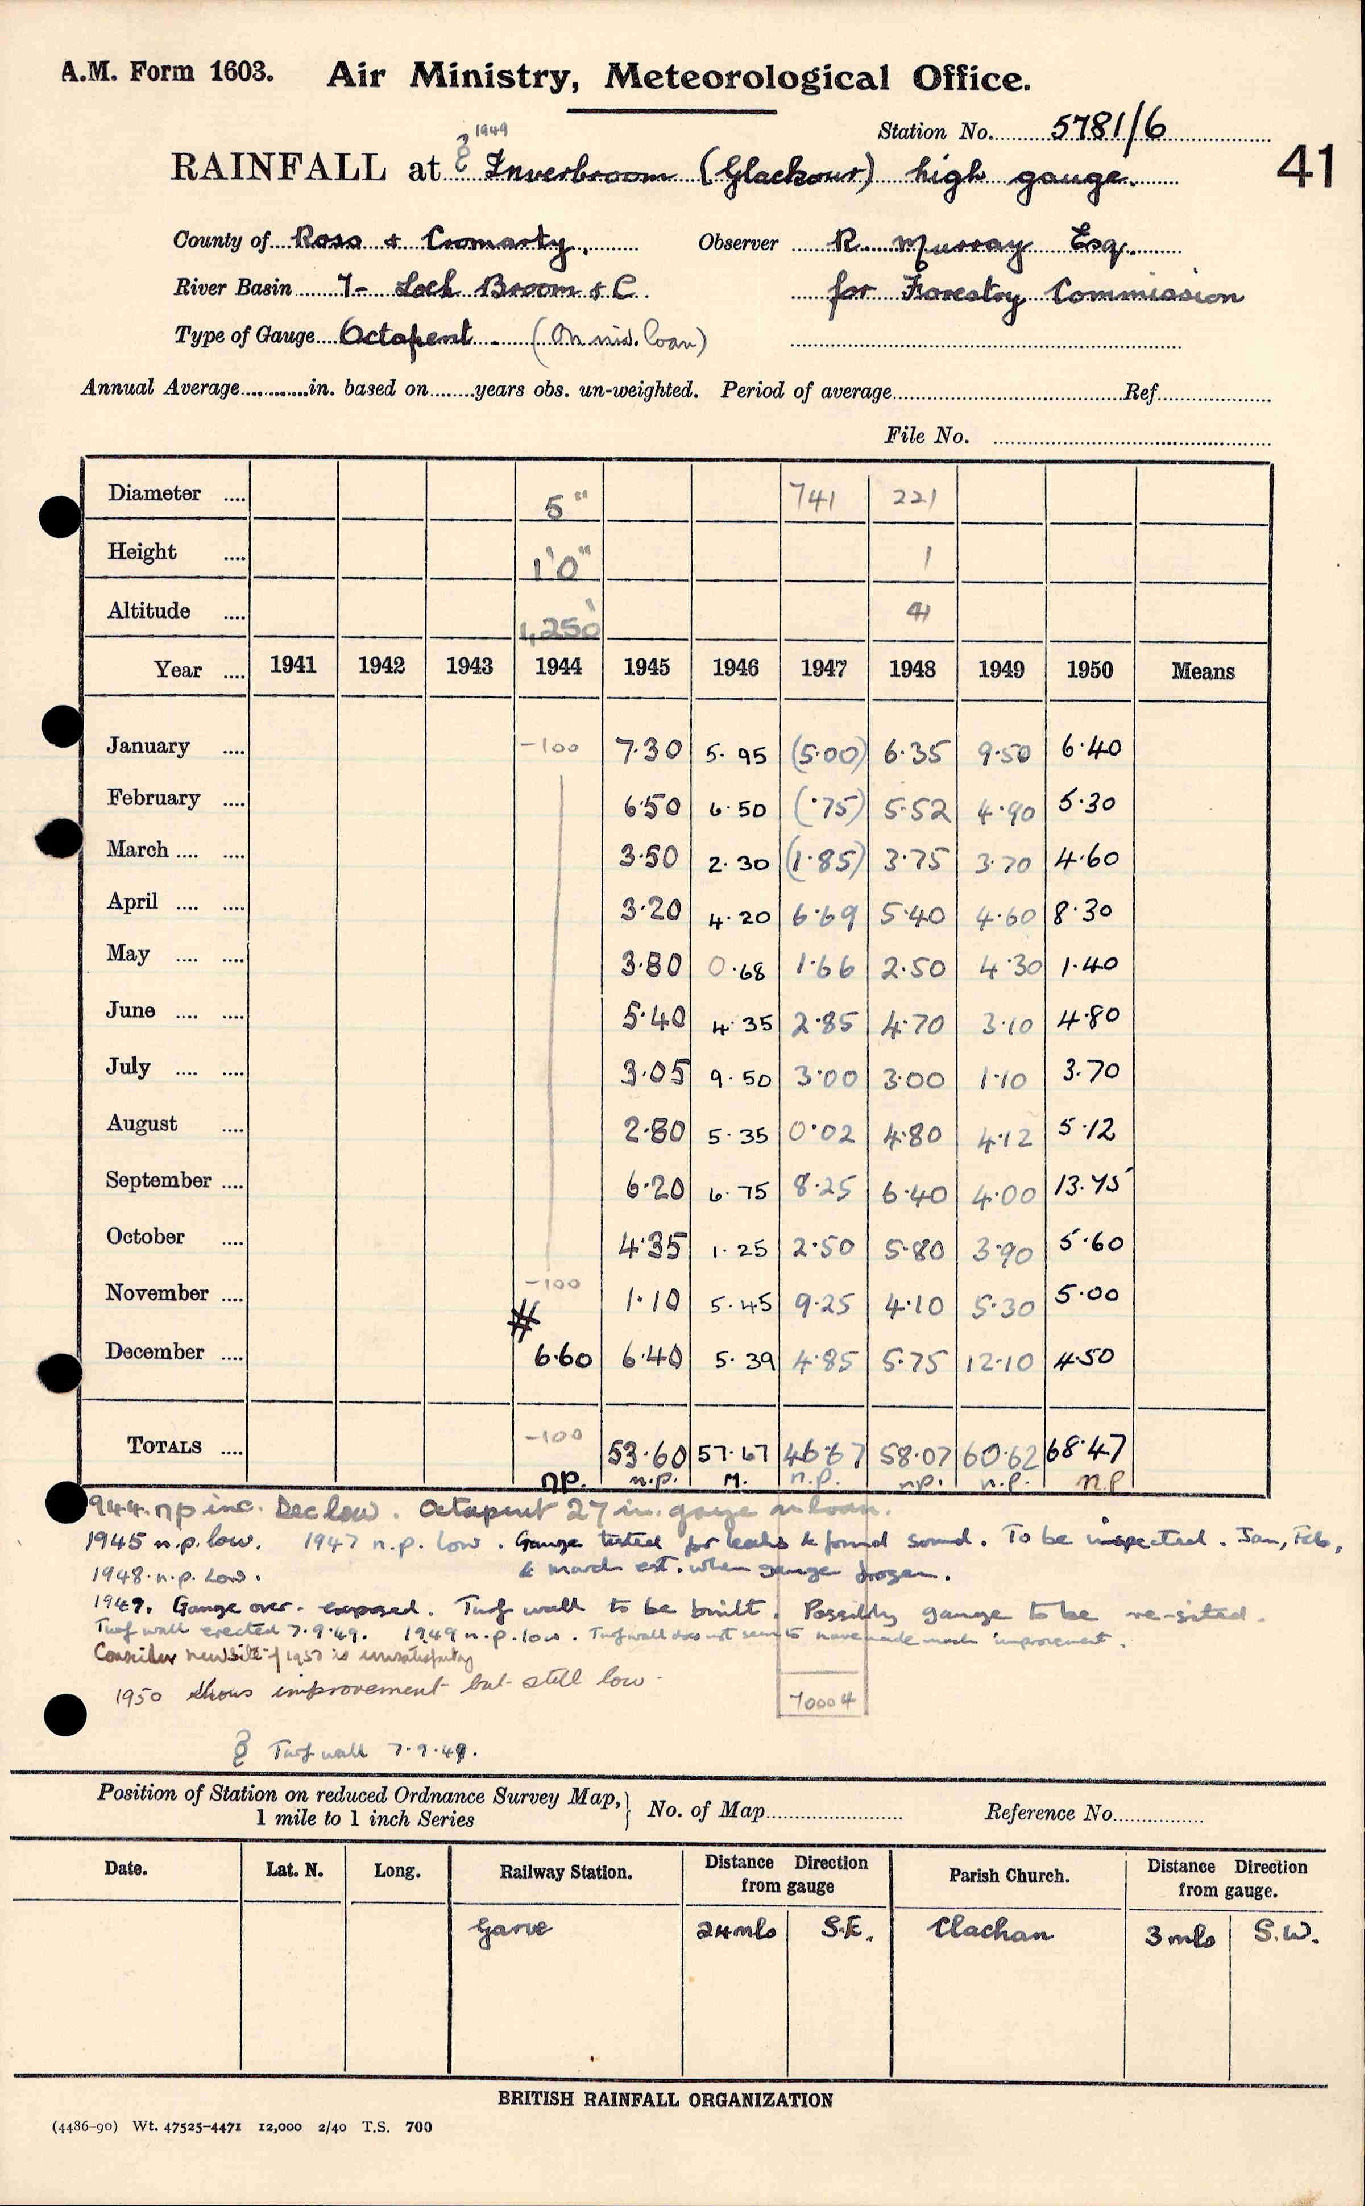 A.M. Form 1603. Air Ministry, Meteorological Office.
Station No. 5781/6
1949
RAINFALL at Inverbroom (Glackour) high gauge. 41
County of Ross & Cromarty. Observer R. Murray Esq.
River Basin 7- Loch Broom & C. for Forestry Commission
Type of Gauge Octapent. (On loan)
Annual Average in. based on years obs. un-weighted. Period of average Ref.
File No.
Diameter 5" 741 221
Height 1'0" 1
Altitude 1,250'
Year 1941 1942 1943 1944 1945 1946 1947 1948 1949 1950 Means
January -100 7.30 5.95 (5.00) 6.35 9.50 6.40
February 6.50 6.50 (.75) 5.52 4.90 5.30
March 3.50 2.30 (1.85) 3.75 3.70 4.60
April 3.20 4.20 6.69 5.40 4.60 8.30
May 3.80 0.68 1.66 2.50 4.30 1.40
June 5.40 4.35 2.85 4.70 3.10 4.80
July 3.05 9.50 3.00 3.00 1.10 3.70
August 2.80 5.35 0.02 4.80 4.12 5.12
September 6.20 6.75 8.25 6.40 4.00 13.75
October 4.35 1.25 2.50 5.80 3.90 5.60
November -100 1.10 5.45 9.25 4.10 5.30 5.00
December # 6.60 6.40 5.39 4.85 5.75 12.10 4.50
TOTALS -100 53.60 57.67 46.67 58.07 60.62 68.47
np. n.p. M. n.p. np. n.p. np
944. np inc. Dec low. Octapent 27 in. gauge on loan.
1945 n.p. low. 1947 n.p. low. Gauge tested for leaks & found sound. To be inspected. Jan, Feb,
1948. n.p. Low. & March est. when gauge frozen.
1949. Gauge over-exposed. Turf wall to be built. Possibly gauge to be re-sited.
Turf wall erected 7.9.49. 1949 n.p. low. Turf wall does not seem to have made much improvement.
Consider new site if 1950 is unsatisfactory
1950 shows improvement but still low.
70004
Turf wall 7.9.49.
Position of Station on reduced Ordnance Survey Map, 1 mile to 1 inch Series } No. of Map Reference No.
Date. Lat. N. Long. Railway Station. Distance Direction from gauge Parish Church. Distance Direction from gauge.
Garve 24 mls S.E. Clachan 3 mls S.W.
BRITISH RAINFALL ORGANIZATION
(4486-90) Wt. 47525-4471 12,000 2/40 T.S. 700